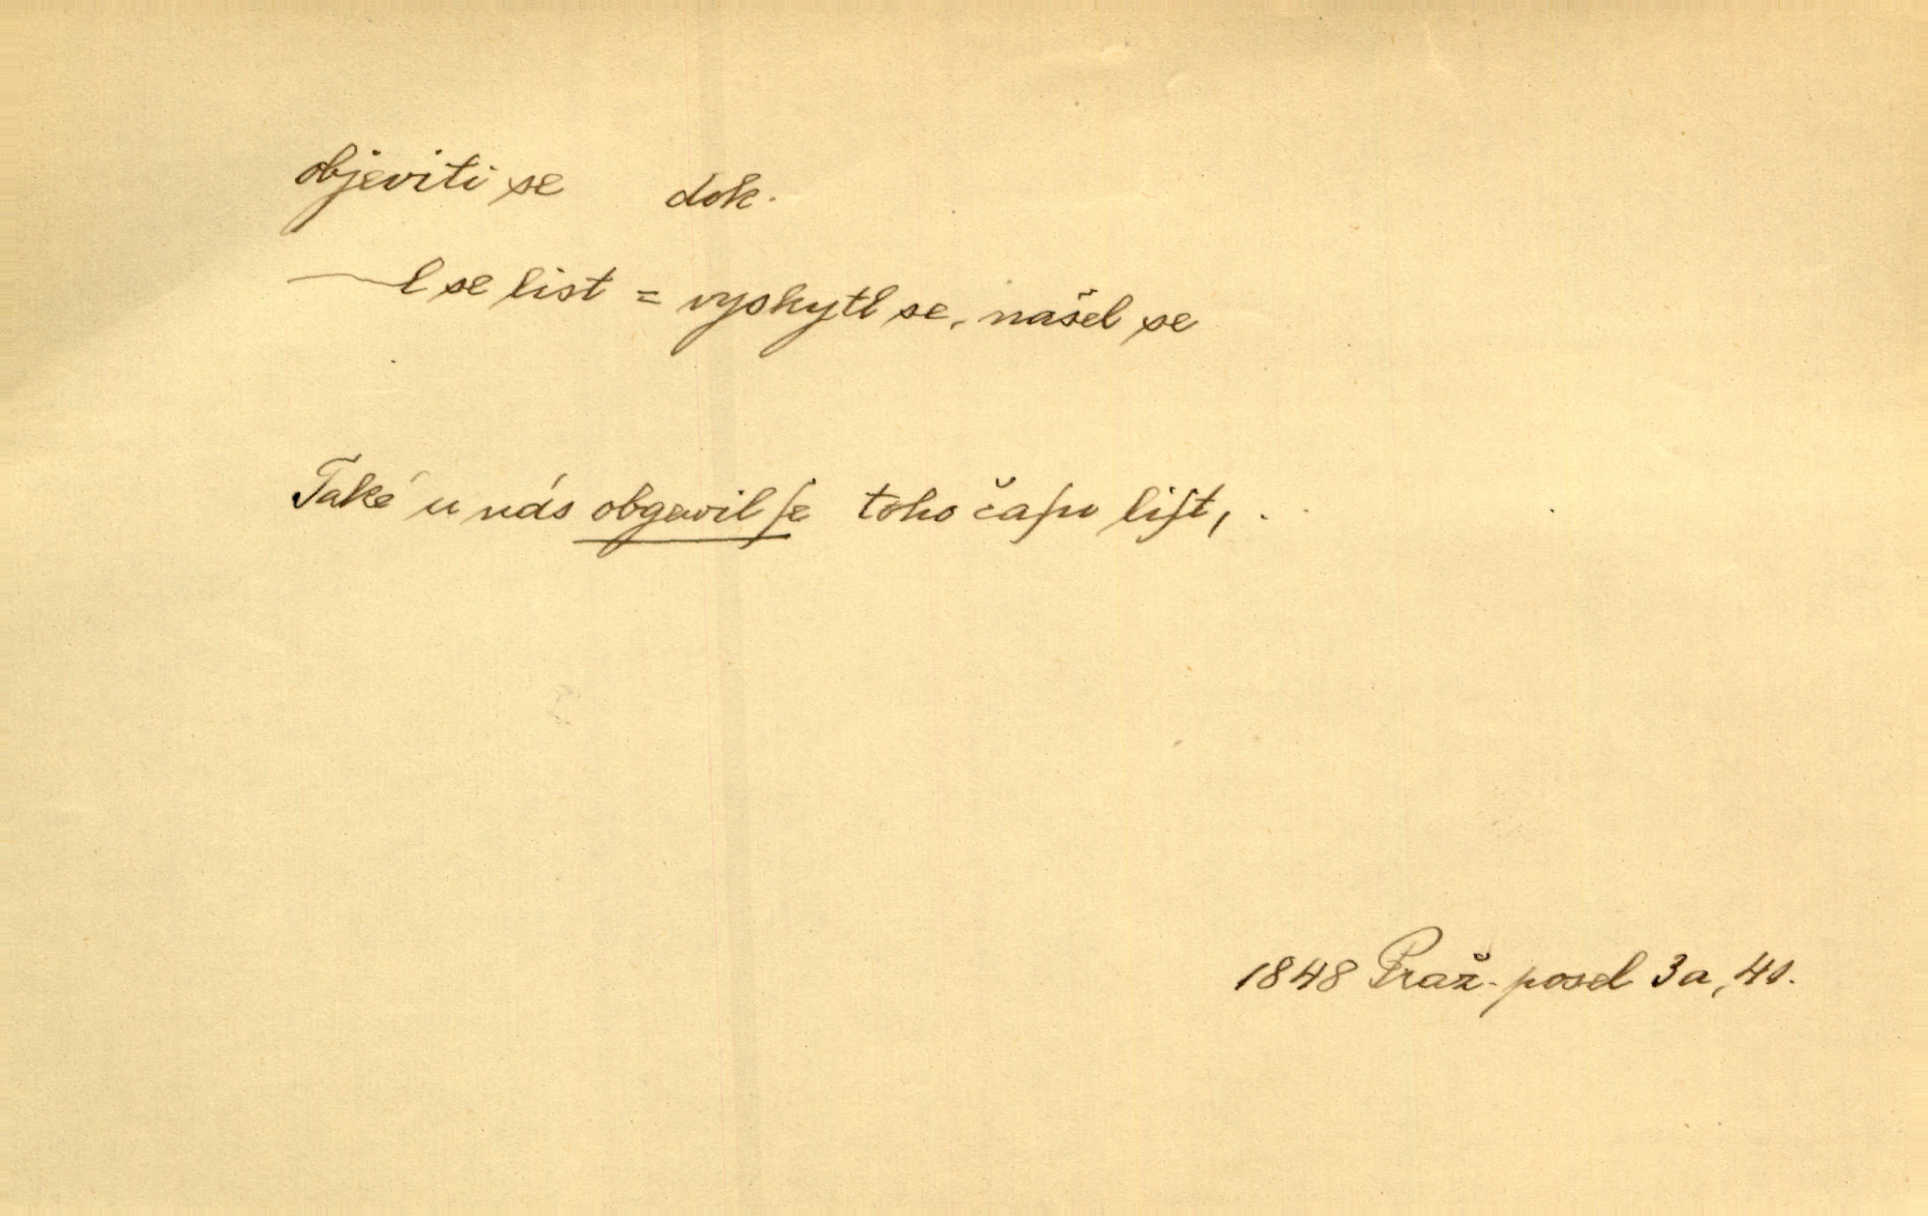 objeviti se dok.
—l se list = vyskytl se, našel se
Také u nás obgevil ſe toho čaſu liſt, . .
1848 Praž. posel 3a, 40.